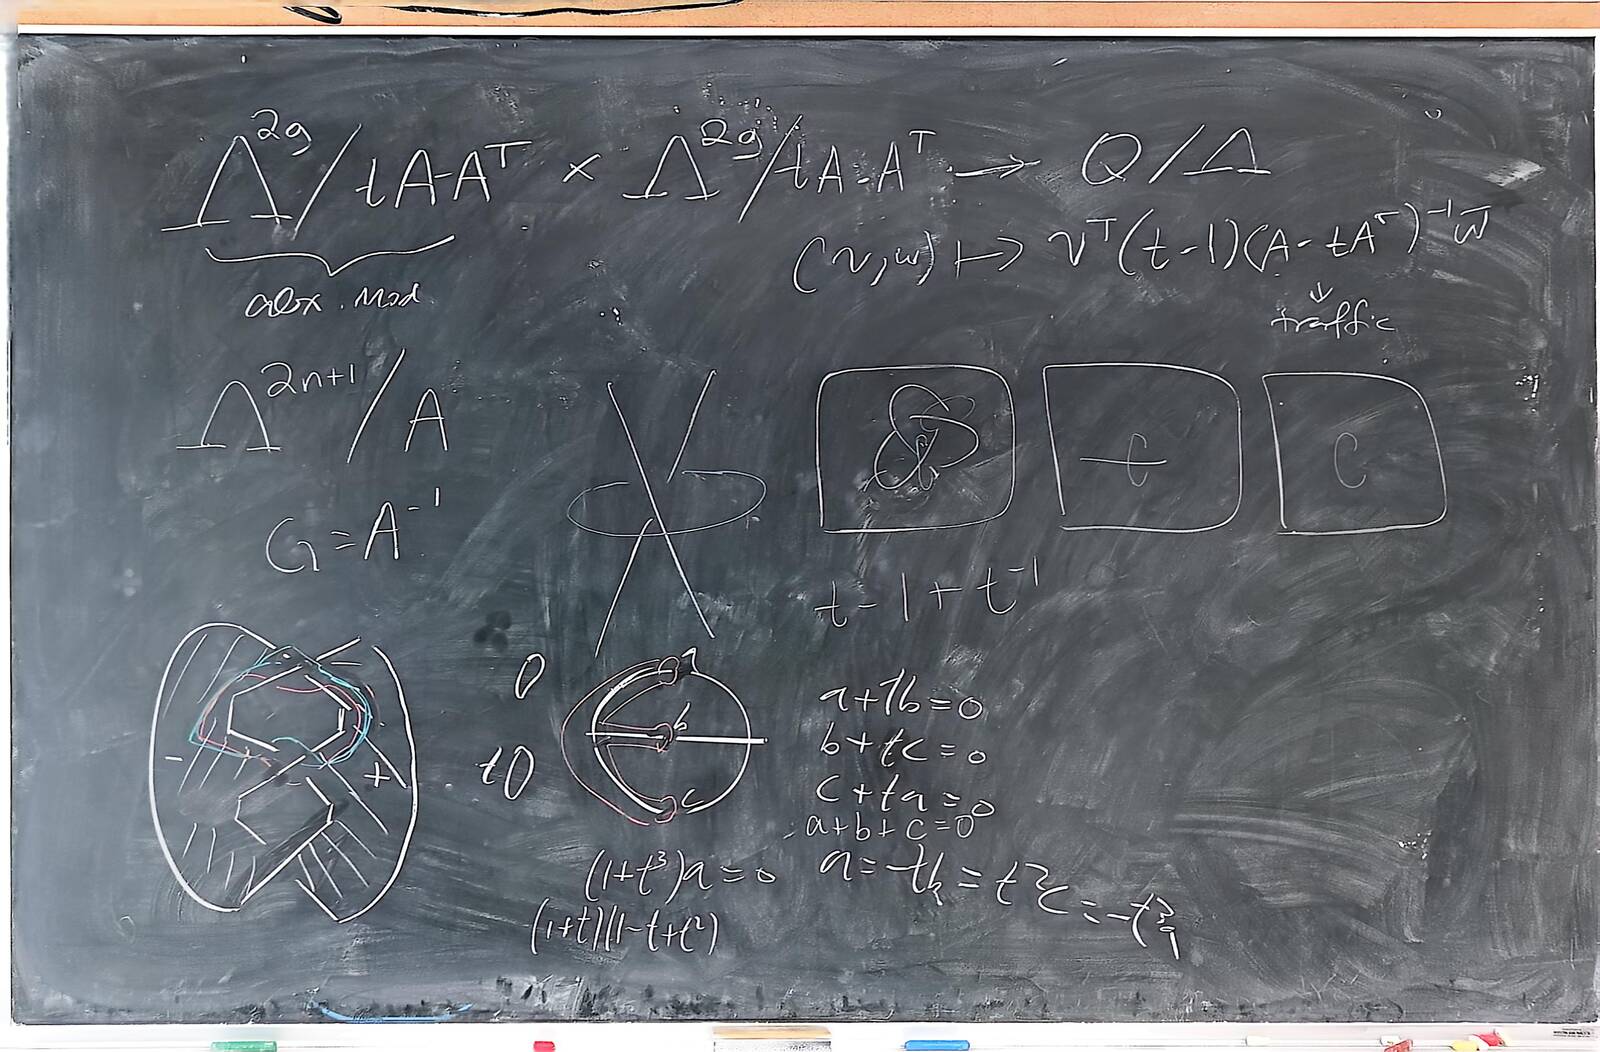 Λ^{2g}/tA-A^T × Λ^{2g}/tA-A^T → Q/Λ
(v,w) ↦ v^T(t-1)(A-tA^T)^{-1} w̄
alex. mod
↓
traffic
Λ^{2n+1}/A
G=A^{-1}
t-1+t^{-1}
- +
0
t0
a
b
c
a+tb=0
b+tc=0
c+ta=0
a+b+c=0
a=-tb=t²c=-t³a
(1+t³)a=0
(1+t)(1-t+t²)